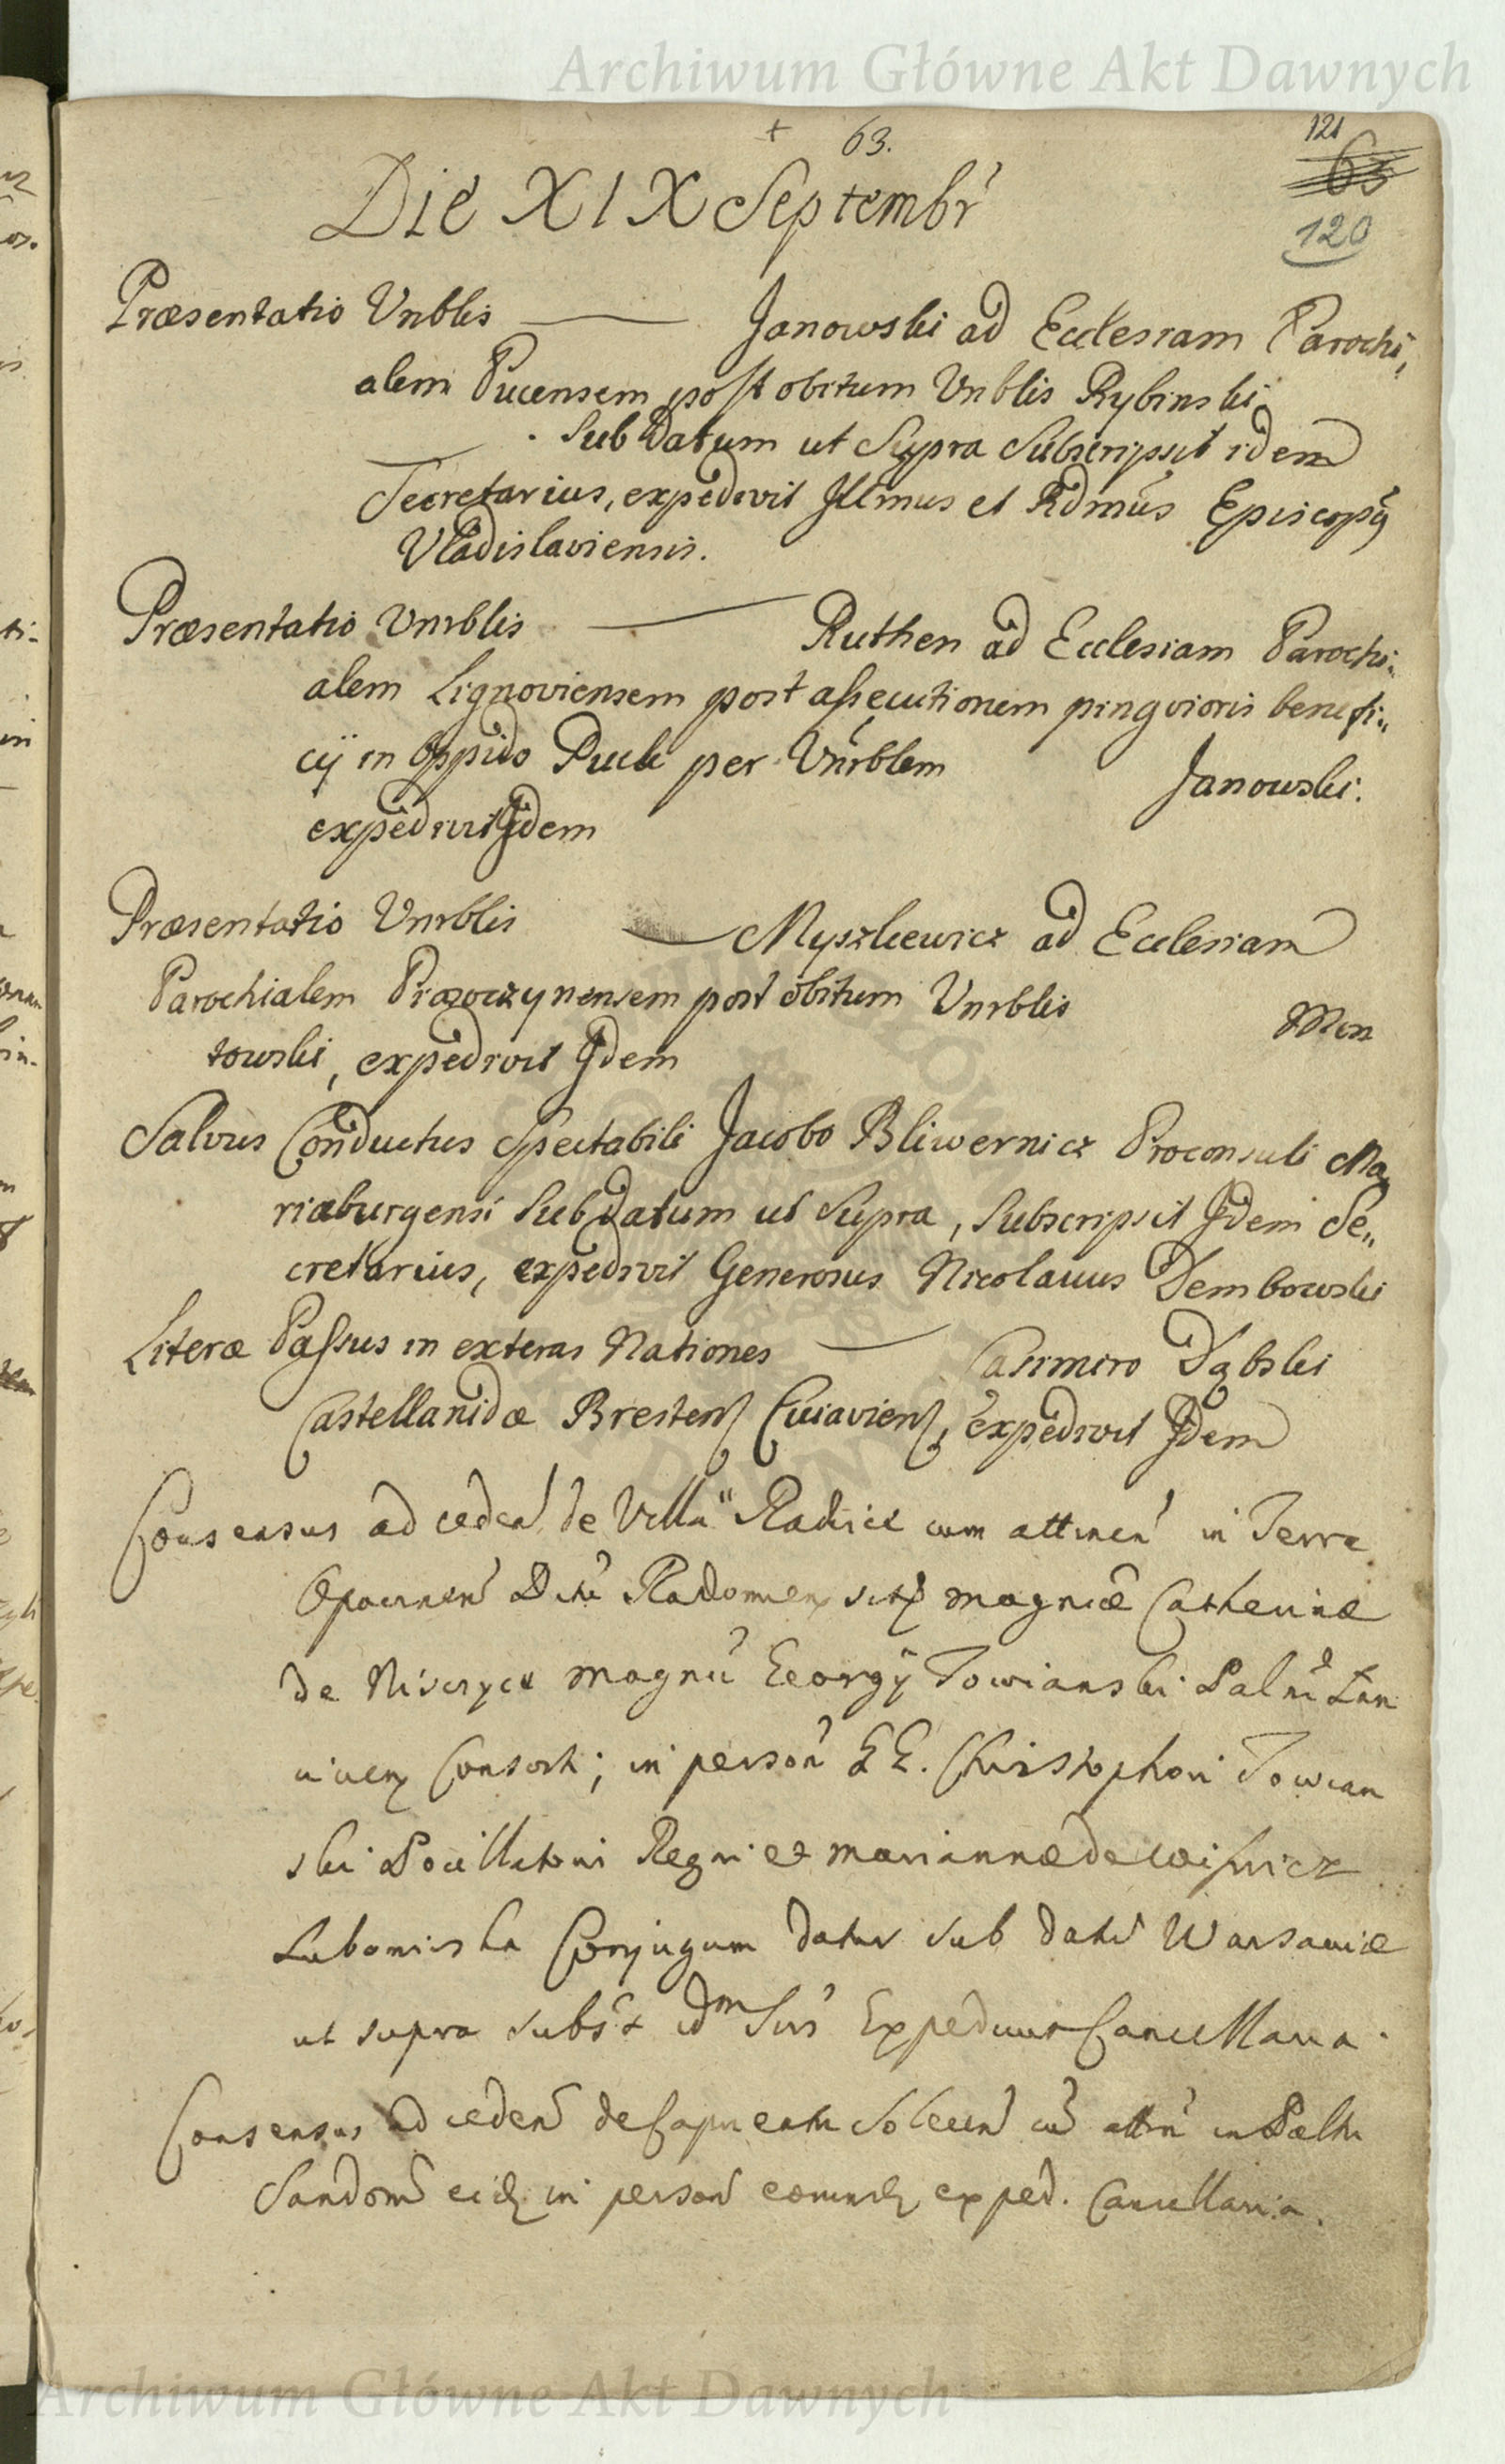 Archiwum Główne Akt Dawnych
+ 63.
121
63
120
Die XIX Septembr'
Præsentatio Vnblis — Janowski ad Ecclesiam Parochi,
alem Pucensem post obitum Vnblis Rybinski
Sub Datum ut Supra Subscripsit idem
Secretarius, expedivit Illmus et Rdmus Episcopus
Vladislaviensis.
Præsentatio Vnrblis — Ruthen ad Ecclesiam Parochi-
alem Lignoviensem post assecutionem pingvioris benefi-
cij in Oppido Puck per Vnrblem Janowski.
expedivit Idem
Præsentatio Vnrblis — Myszkiewicz ad Ecclesiam
Parochialem post obitum Vnrblis Mon
towski, expedivit Idem
Salvus Conductus Spectabili Jacobo Bliwernicz Proconsuli Ma,
riæburgensi Sub Datum ut Supra, Subscripsit Idem Se,,
cretarius, expedivit Generosus Nicolaus Dembowski
Literæ Passus in exteras Nationes — Casimiro Dąbski
Castellanidæ Brestens Cuiaviens, expedivit Idem
Consensus ad ceden' de Villa cum attinen' in Terra
Opocinen' Radomien magnicæ Catherinæ
de magnci Georgij Towianski Palni Lan
cicien Consorti; in person' GG. Christophori Towian
ski Pocillatoris Regni et Mariannæ de Wisnicz
Lubomirska Conjugum datur sub dat' Warsaviæ
ut supra subst idm Expedivit Cancellaria.
Consensus ad ceden' de in Paltu
Sandom' in person' eorund exped. Cancellaria.
Archiwum Główne Akt Dawnych